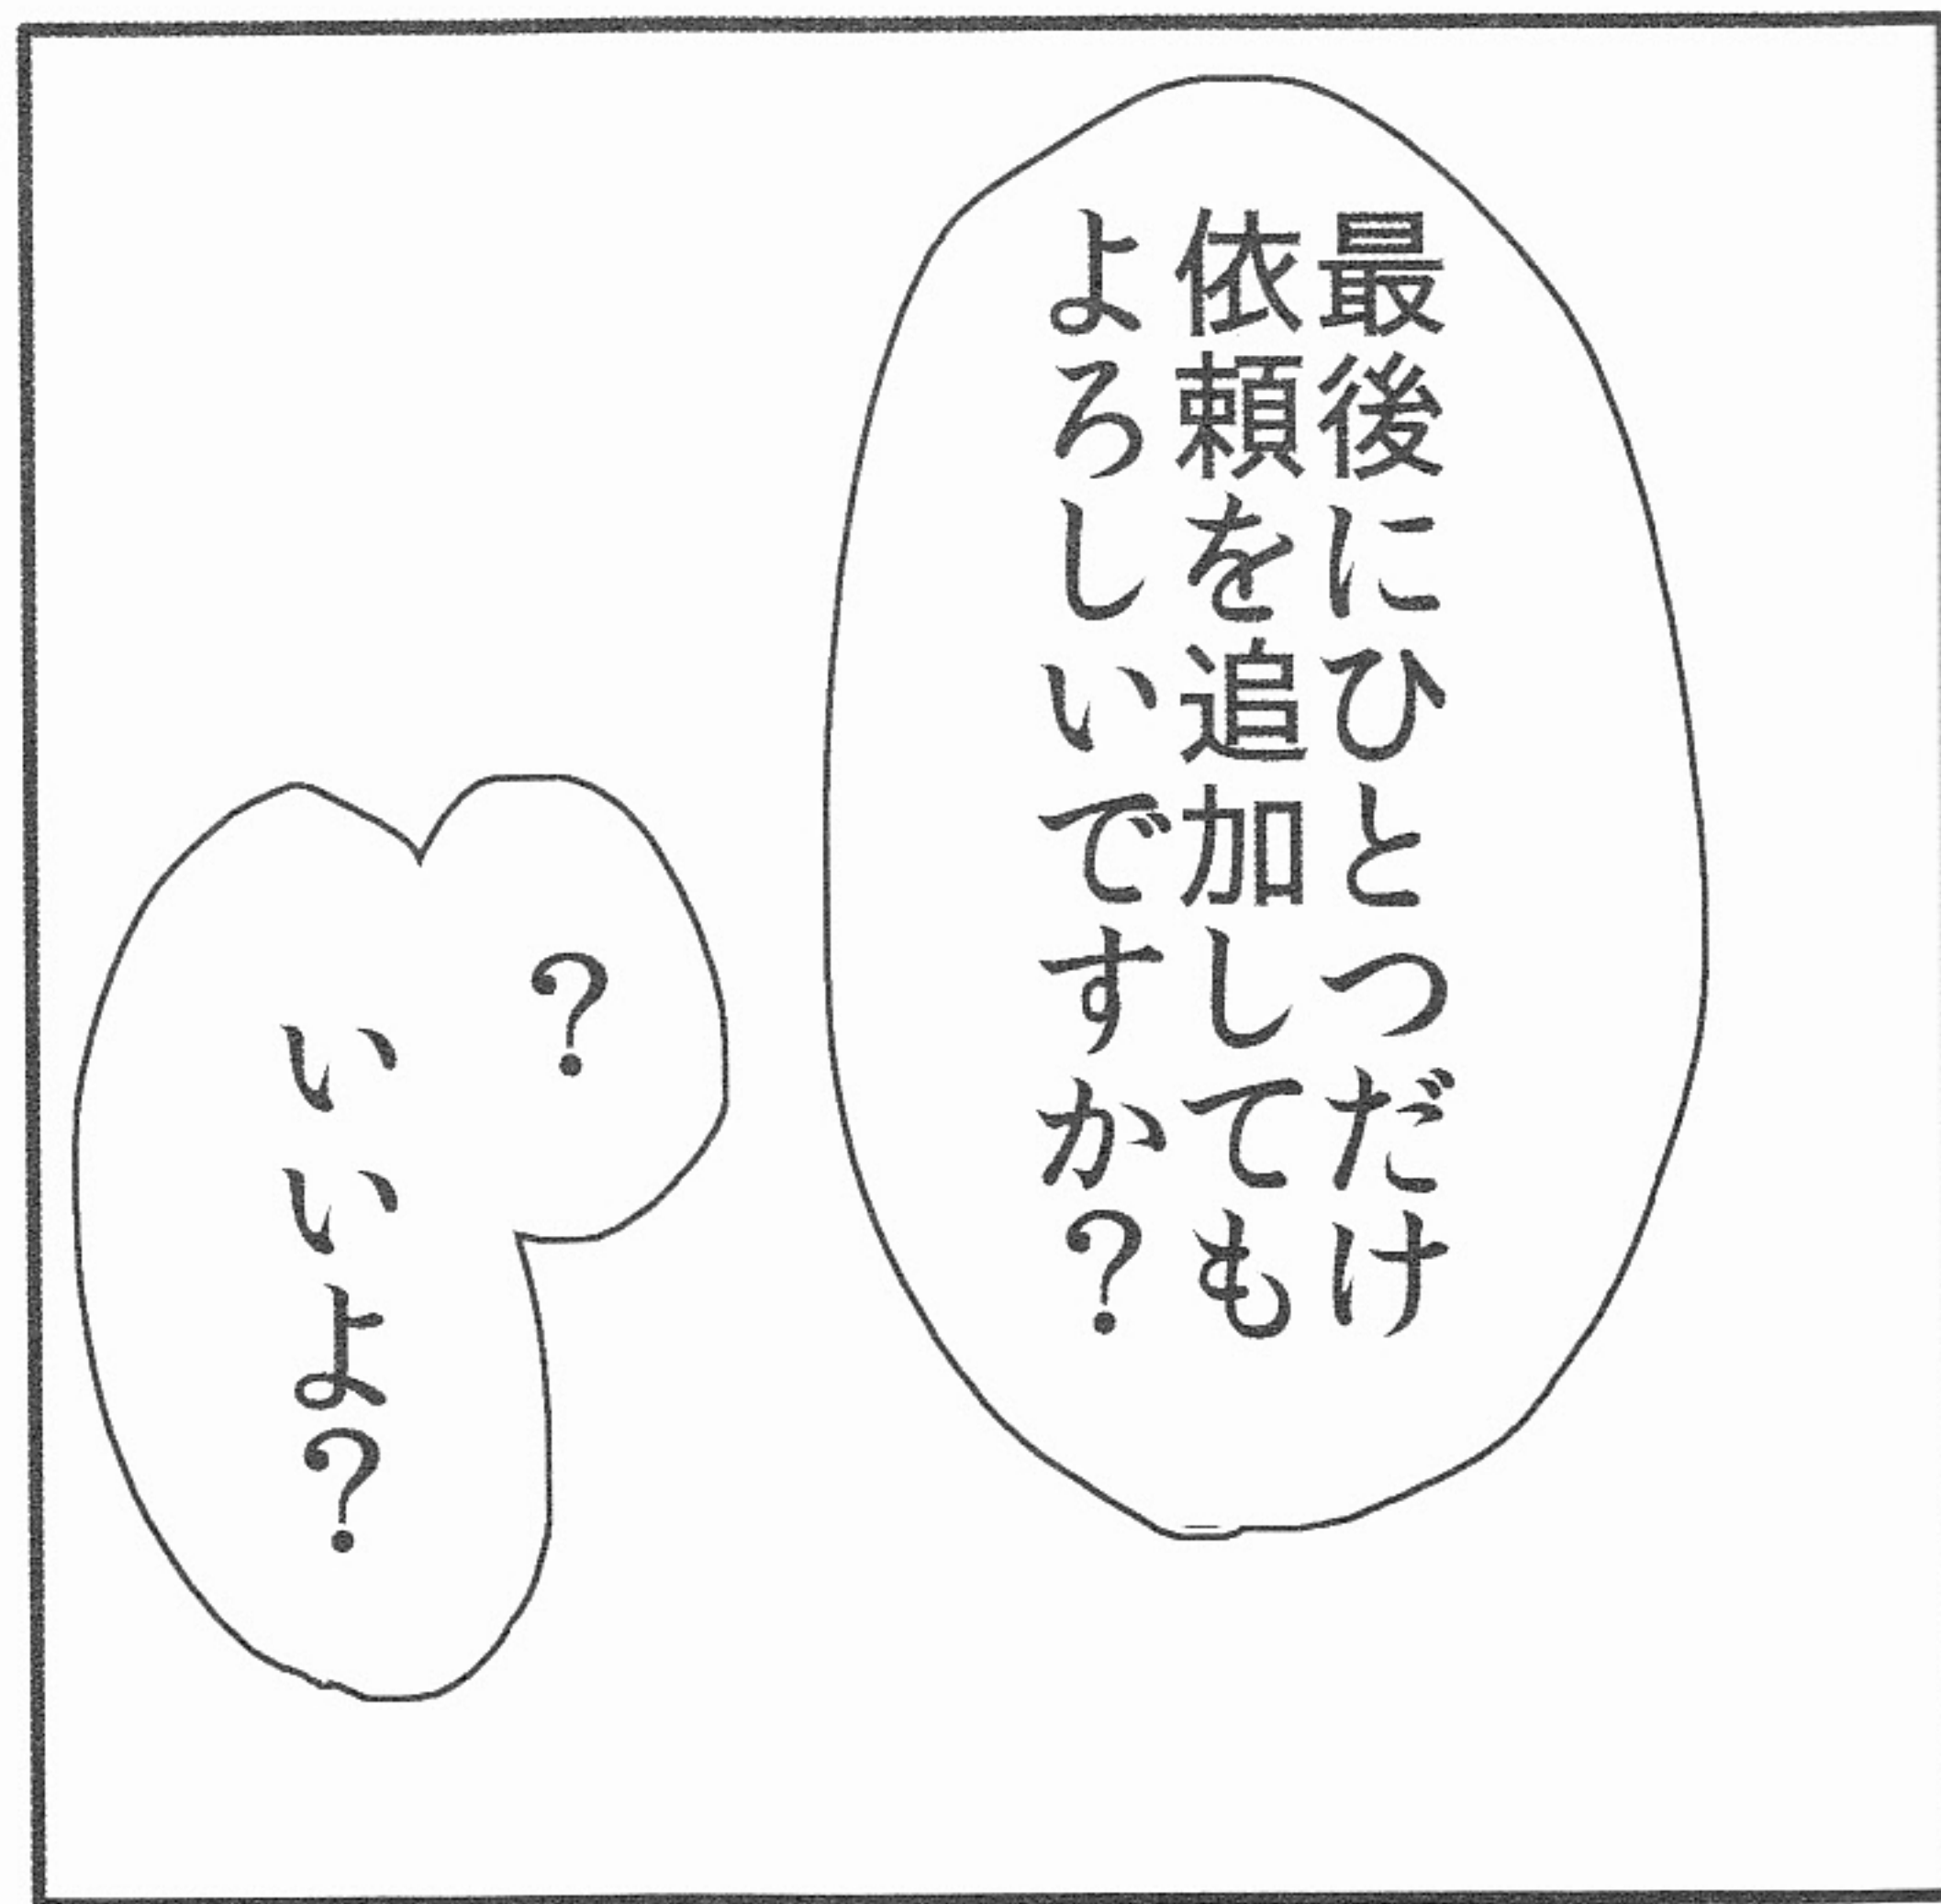 最後にひとつだけ
依頼を追加しても
よろしいですか?
?
いいよ?